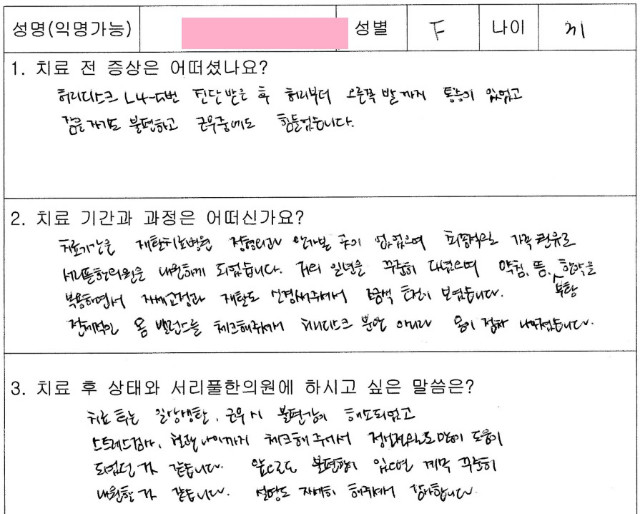 성명(익명가능) 성별 F 나이 31
1. 치료 전 증상은 어떠셨나요?
허리디스크 L4-5번 진단 받은 후 허리부터 오른쪽 발까지 통증이 있었고
잠을 자기도 불편하고 근무중에도 힘들었습니다.
2. 치료 기간과 과정은 어떠신가요?
치료기간은 재활치료병원 정형외과 안가본 곳이 없었으며 마지막으로 가족 권유로
서리풀한의원을 내원하게 되었습니다. 거의 일년을 꾸준히 다녔으며 약침, 뜸, 부항 한약을
복용하면서 자세교정과 재활도 신경써주셔서 조금씩 호전이 보였습니다.
전체적인 몸 밸런스를 체크해주셔서 허리디스크 뿐만 아니라 몸이 점차 나아졌습니다.
3. 치료 후 상태와 서리풀한의원에 하시고 싶은 말씀은?
치료 후는 일상생활, 근무시 불편감이 해소되었고
스트레스검사, 혈관나이까지 체크해 주셔서 정신적으로도 많이 도움이
되었던 것 같습니다. 앞으로도 불편함이 있으면 계속 꾸준히
내원할 것 같습니다. 설명도 자세히 해주셔서 감사합니다.